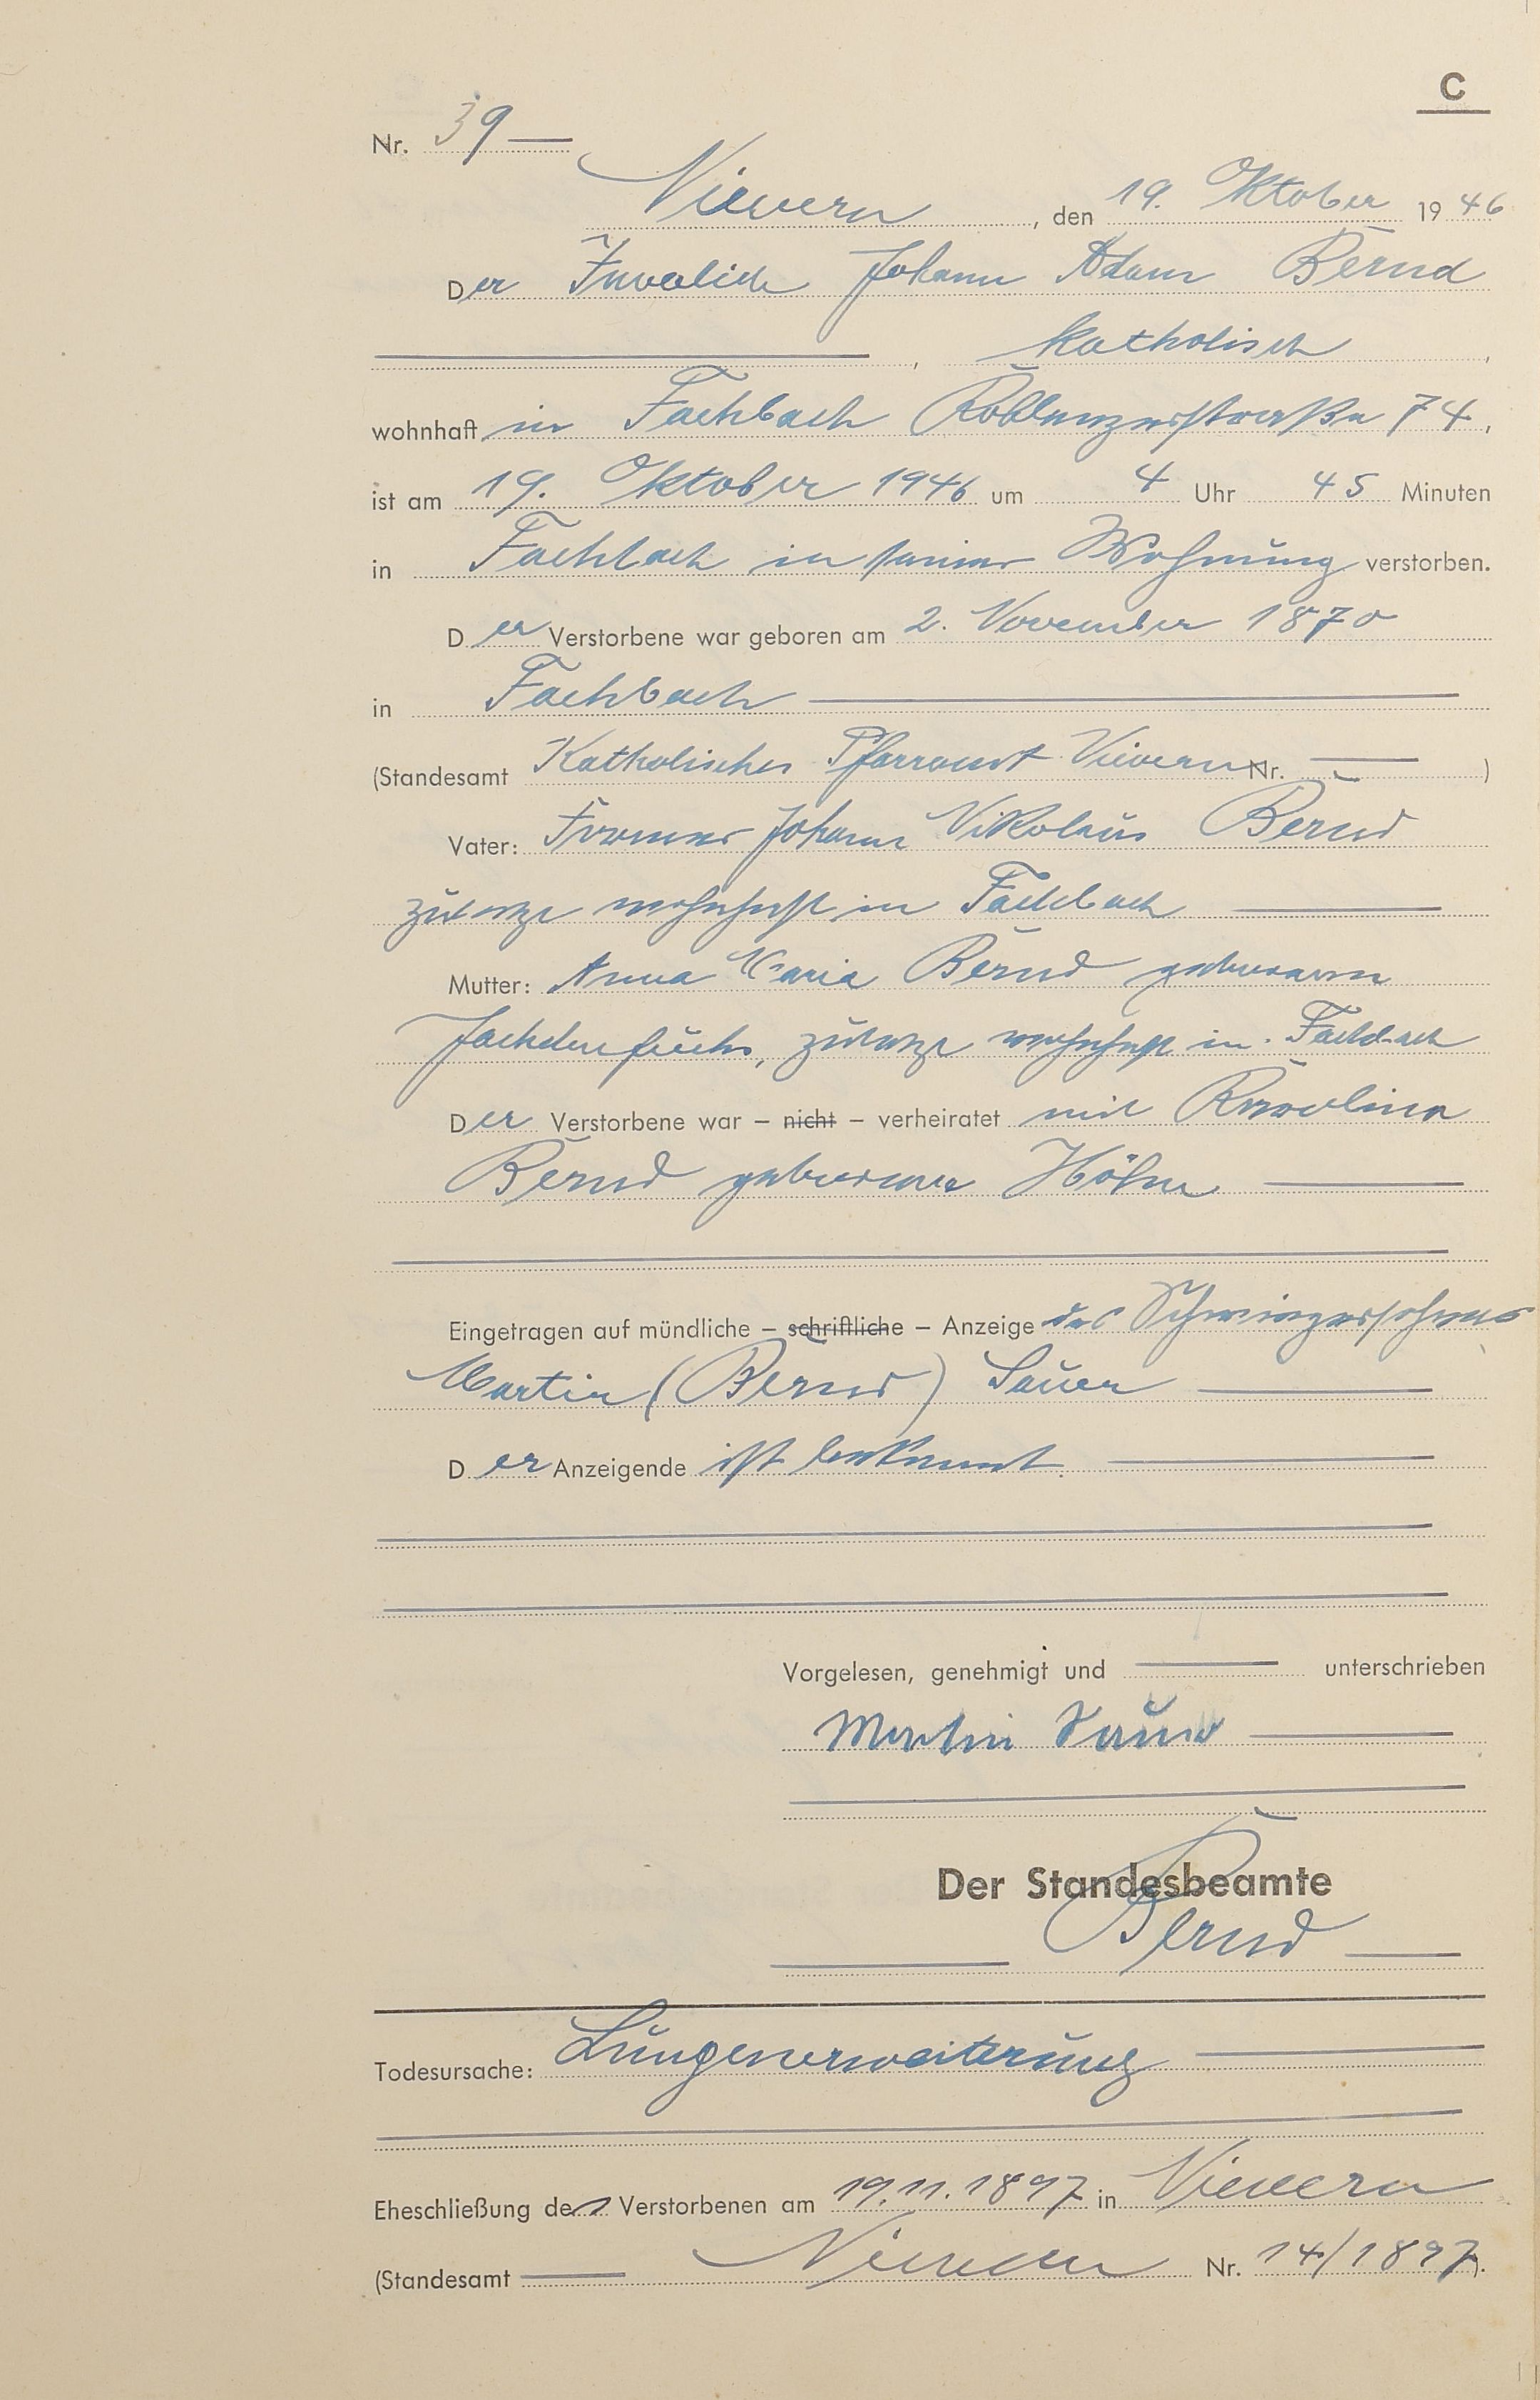 C
Nr. 39
Nievern, den 19. Oktober 1946
Der Invalide Johann Adam Bernd
, katholisch,
wohnhaft in Fachbach Koblenzerstraße 74,
ist am 19. Oktober 1946 um 4 Uhr 45 Minuten
in Fachbach in seiner Wohnung verstorben.
Der Verstorbene war geboren am 2. November 1870
in Fachbach
(Standesamt Katholisches Pfarramt Nievern Nr. — )
Vater: Former Johann Nikolaus Bernd
zuletzt wohnhaft in Fachbach
Mutter: Anna Maria Bernd geborene
zuletzt wohnhaft in Fachbach
Der Verstorbene war – nicht – verheiratet mit Karolina
Bernd geborene Höhn
Eingetragen auf mündliche – schriftliche – Anzeige des Schwiegersohnes
Martin (Bernd) Sauer
Der Anzeigende ist bekannt.
Vorgelesen, genehmigt und — unterschrieben
Martin Sauer
Der Standesbeamte
Bernd
Todesursache: Lungenerweiterung
Eheschließung des Verstorbenen am 19.11.1897 in Nievern
(Standesamt — Nievern Nr. 14/1897).